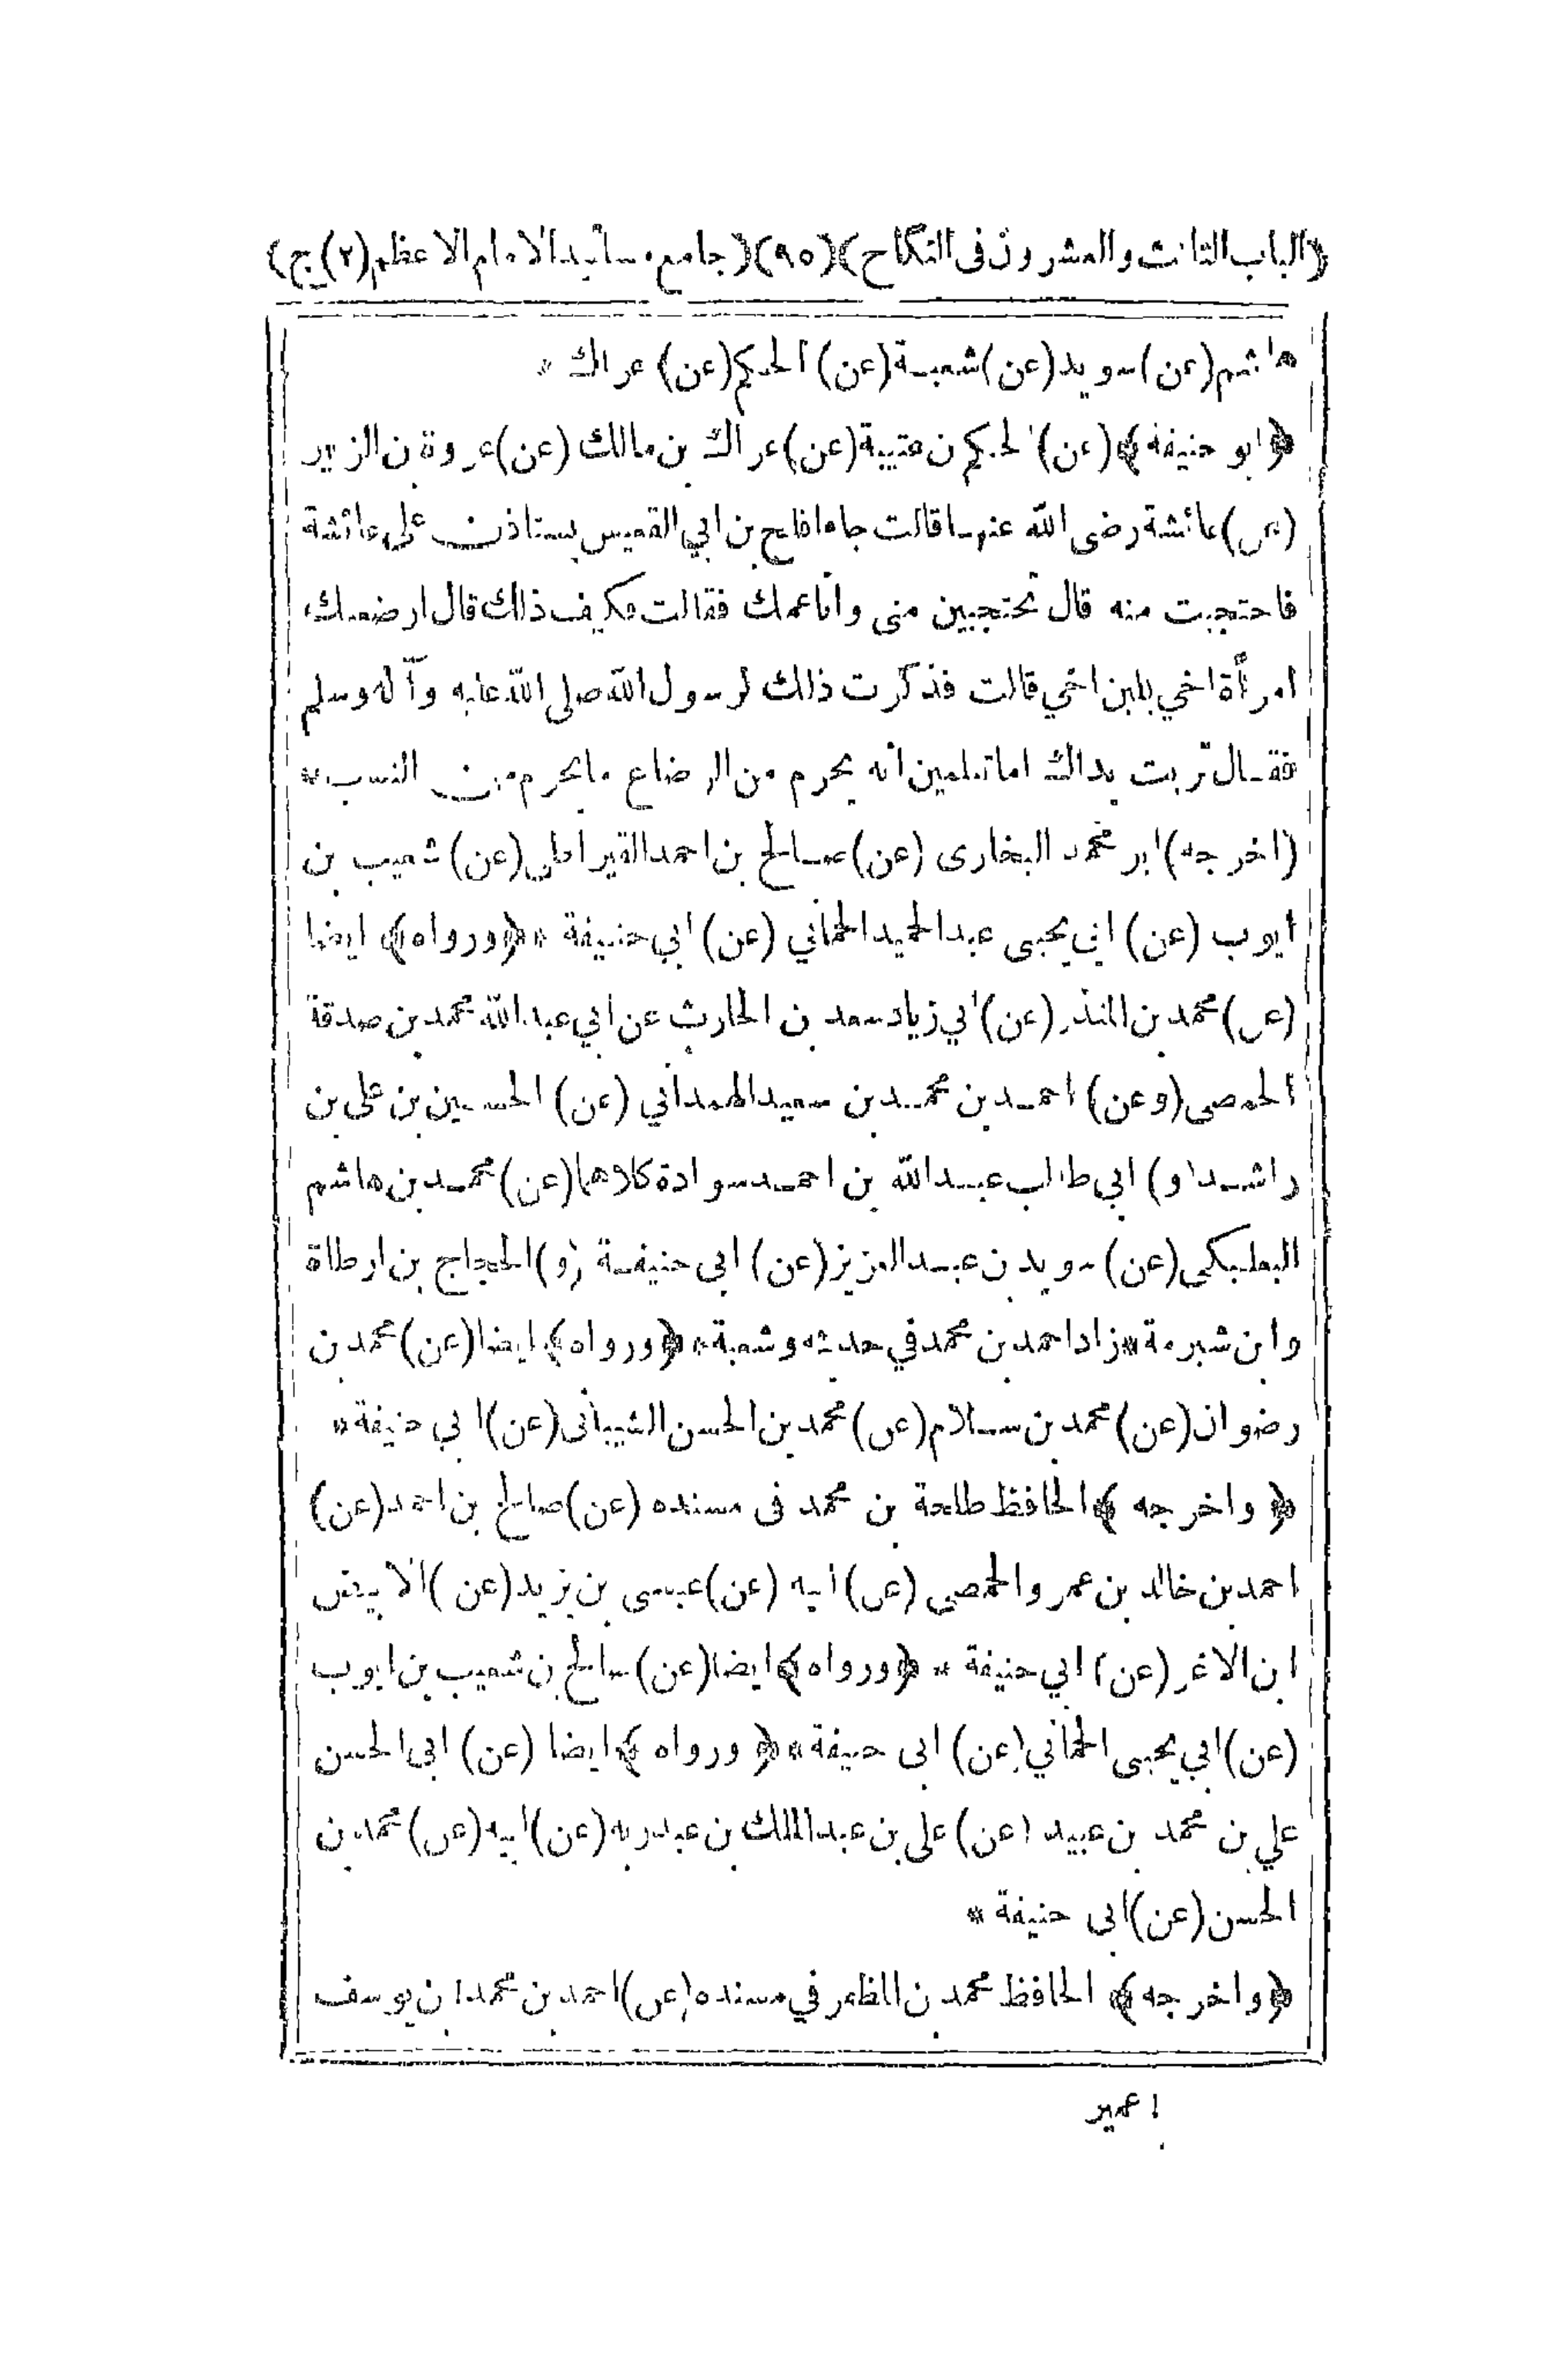 ﴿الباب الثالث والعشرون فى النكاح﴾(٩٥)﴿جامع مسانيد الامام الاعظم(٢)ج﴾
هاشم(عن)سويد(عن)شعبة(عن) الحكم(عن) عراك *
﴿ابو حنيفة﴾(عن)الحكم بن عتيبة(عن)عراك بن مالك(عن)عروة بن الزبير
(عن)عائشة رضى الله عنها قالت جاء افلح بن ابي القعيس يستاذن على عائشة
فاحتجبت منه قال تحتجبين منى وانا عمك فقالت فكيف ذلك قال ارضعتك
امرأة اخي بلبن اخي قالت فذكرت ذلك لرسول الله صلى الله عليه وآله وسلم
فقال تربت يداك اما تعلمين انه يحرم من الرضاع ما يحرم من النسب *
(اخرجه)ابو محمد البخارى (عن)صالح بن احمد القيراطى(عن)شعيب بن
ايوب (عن) ابي يحيى عبد الحميد الحماني (عن)ابي حنيفة *﴿ورواه﴾ ايضا
(عن)محمد بن المنذر(عن)ابي زياد سعد بن الحارث عن ابي عبد الله محمد بن صدقة
الحمصى(وعن) احمد بن محمد بن سعيد الهمداني (عن) الحسين بن على بن
راشد(و) ابي طالب عبد الله بن احمد سوادة كلاهما(عن)محمد بن هاشم
البعلبكى(عن)سويد بن عبد العزيز(عن) ابى حنيفة (و)الحجاج بن ارطاة
وابن شبرمة*زاد احمد بن محمد في حديثه وشعبة*﴿ورواه﴾ايضا(عن)محمد بن
رضوان(عن)محمد بن سلام(عن)محمد بن الحسن الشيبانى(عن)ابي حنيفة*
﴿واخرجه﴾الحافظ طلحة بن محمد فى مسنده (عن)صالح بن احمد(عن)
احمد بن خالد بن عمرو الحمصى (عن)ابيه (عن)عيسى بن يزيد(عن)الابيض
ابن الاغر(عن) ابي حنيفة *﴿ورواه﴾ايضا(عن)صالح بن شعيب بن ايوب
(عن)ابي يحيى الحماني(عن) ابى حنيفة*﴿ورواه﴾ايضا (عن) ابى الحسن
علي بن محمد بن عبيد (عن)على بن عبد الملك بن عبد ربه(عن)ابيه(عن)محمد بن
الحسن(عن)ابى حنيفة *
﴿واخرجه﴾ الحافظ محمد بن المظفر في مسنده(عن)احمد بن محمد بن يوسف
ا عمير